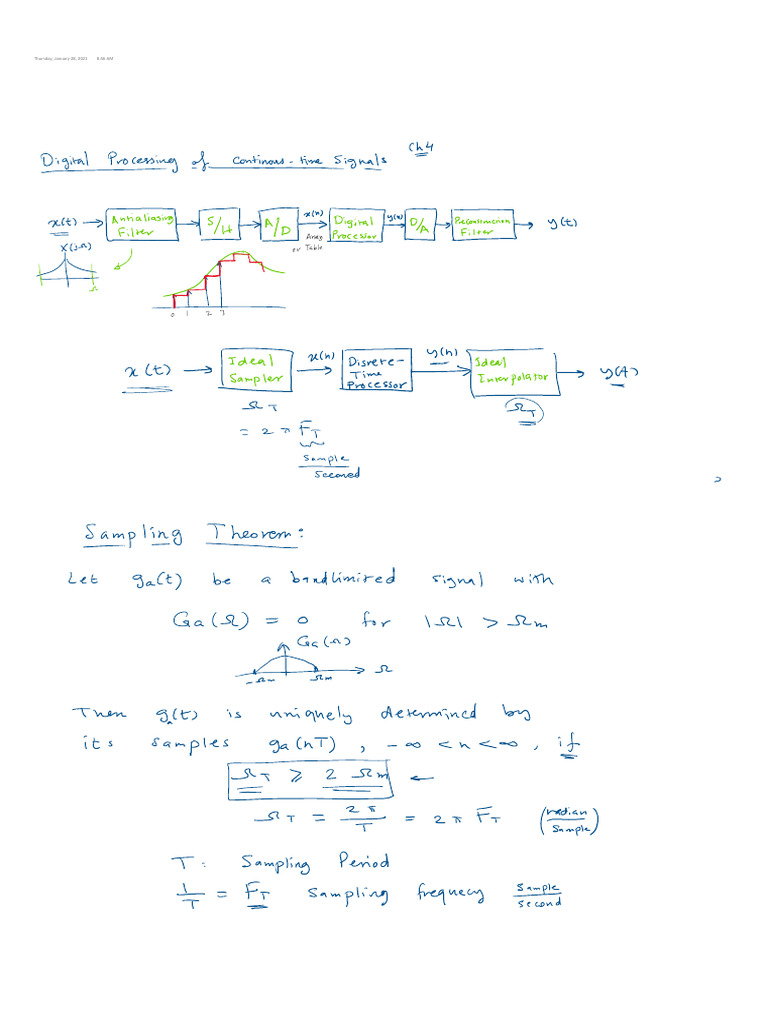 Thursday, January 28, 2021
Digital Processing of Continous-time Signals Ch4
x(t) → Antialiasing Filter → S/H → A/D x(n) → Digital Processor y(n) → D/A → Reconstruction Filter → y(t)
Array or Table
X(jΩ)
Ω
0 1 2 3
x(t) → Ideal Sampler x(n) → Disrete-Time Processor y(n) → Ideal Interpolator → y(t)
Ω_T Ω_T
= 2π F_T
Sample
Secored
Sampling Theorem:
Let ga(t) be a bandlimited signal with
Ga(Ω) = 0 for |Ω| > Ωm
Ga(Ω)
-Ωm Ωm Ω
Then ga(t) is uniquely determined by
its samples ga(nT), -∞ < n < ∞, if
Ω_T ⩾ 2 Ωm ←
Ω_T = 2π/T = 2π F_T (radian/Sample)
T: Sampling Period
1/T = F_T Sampling frequecy Sample/second